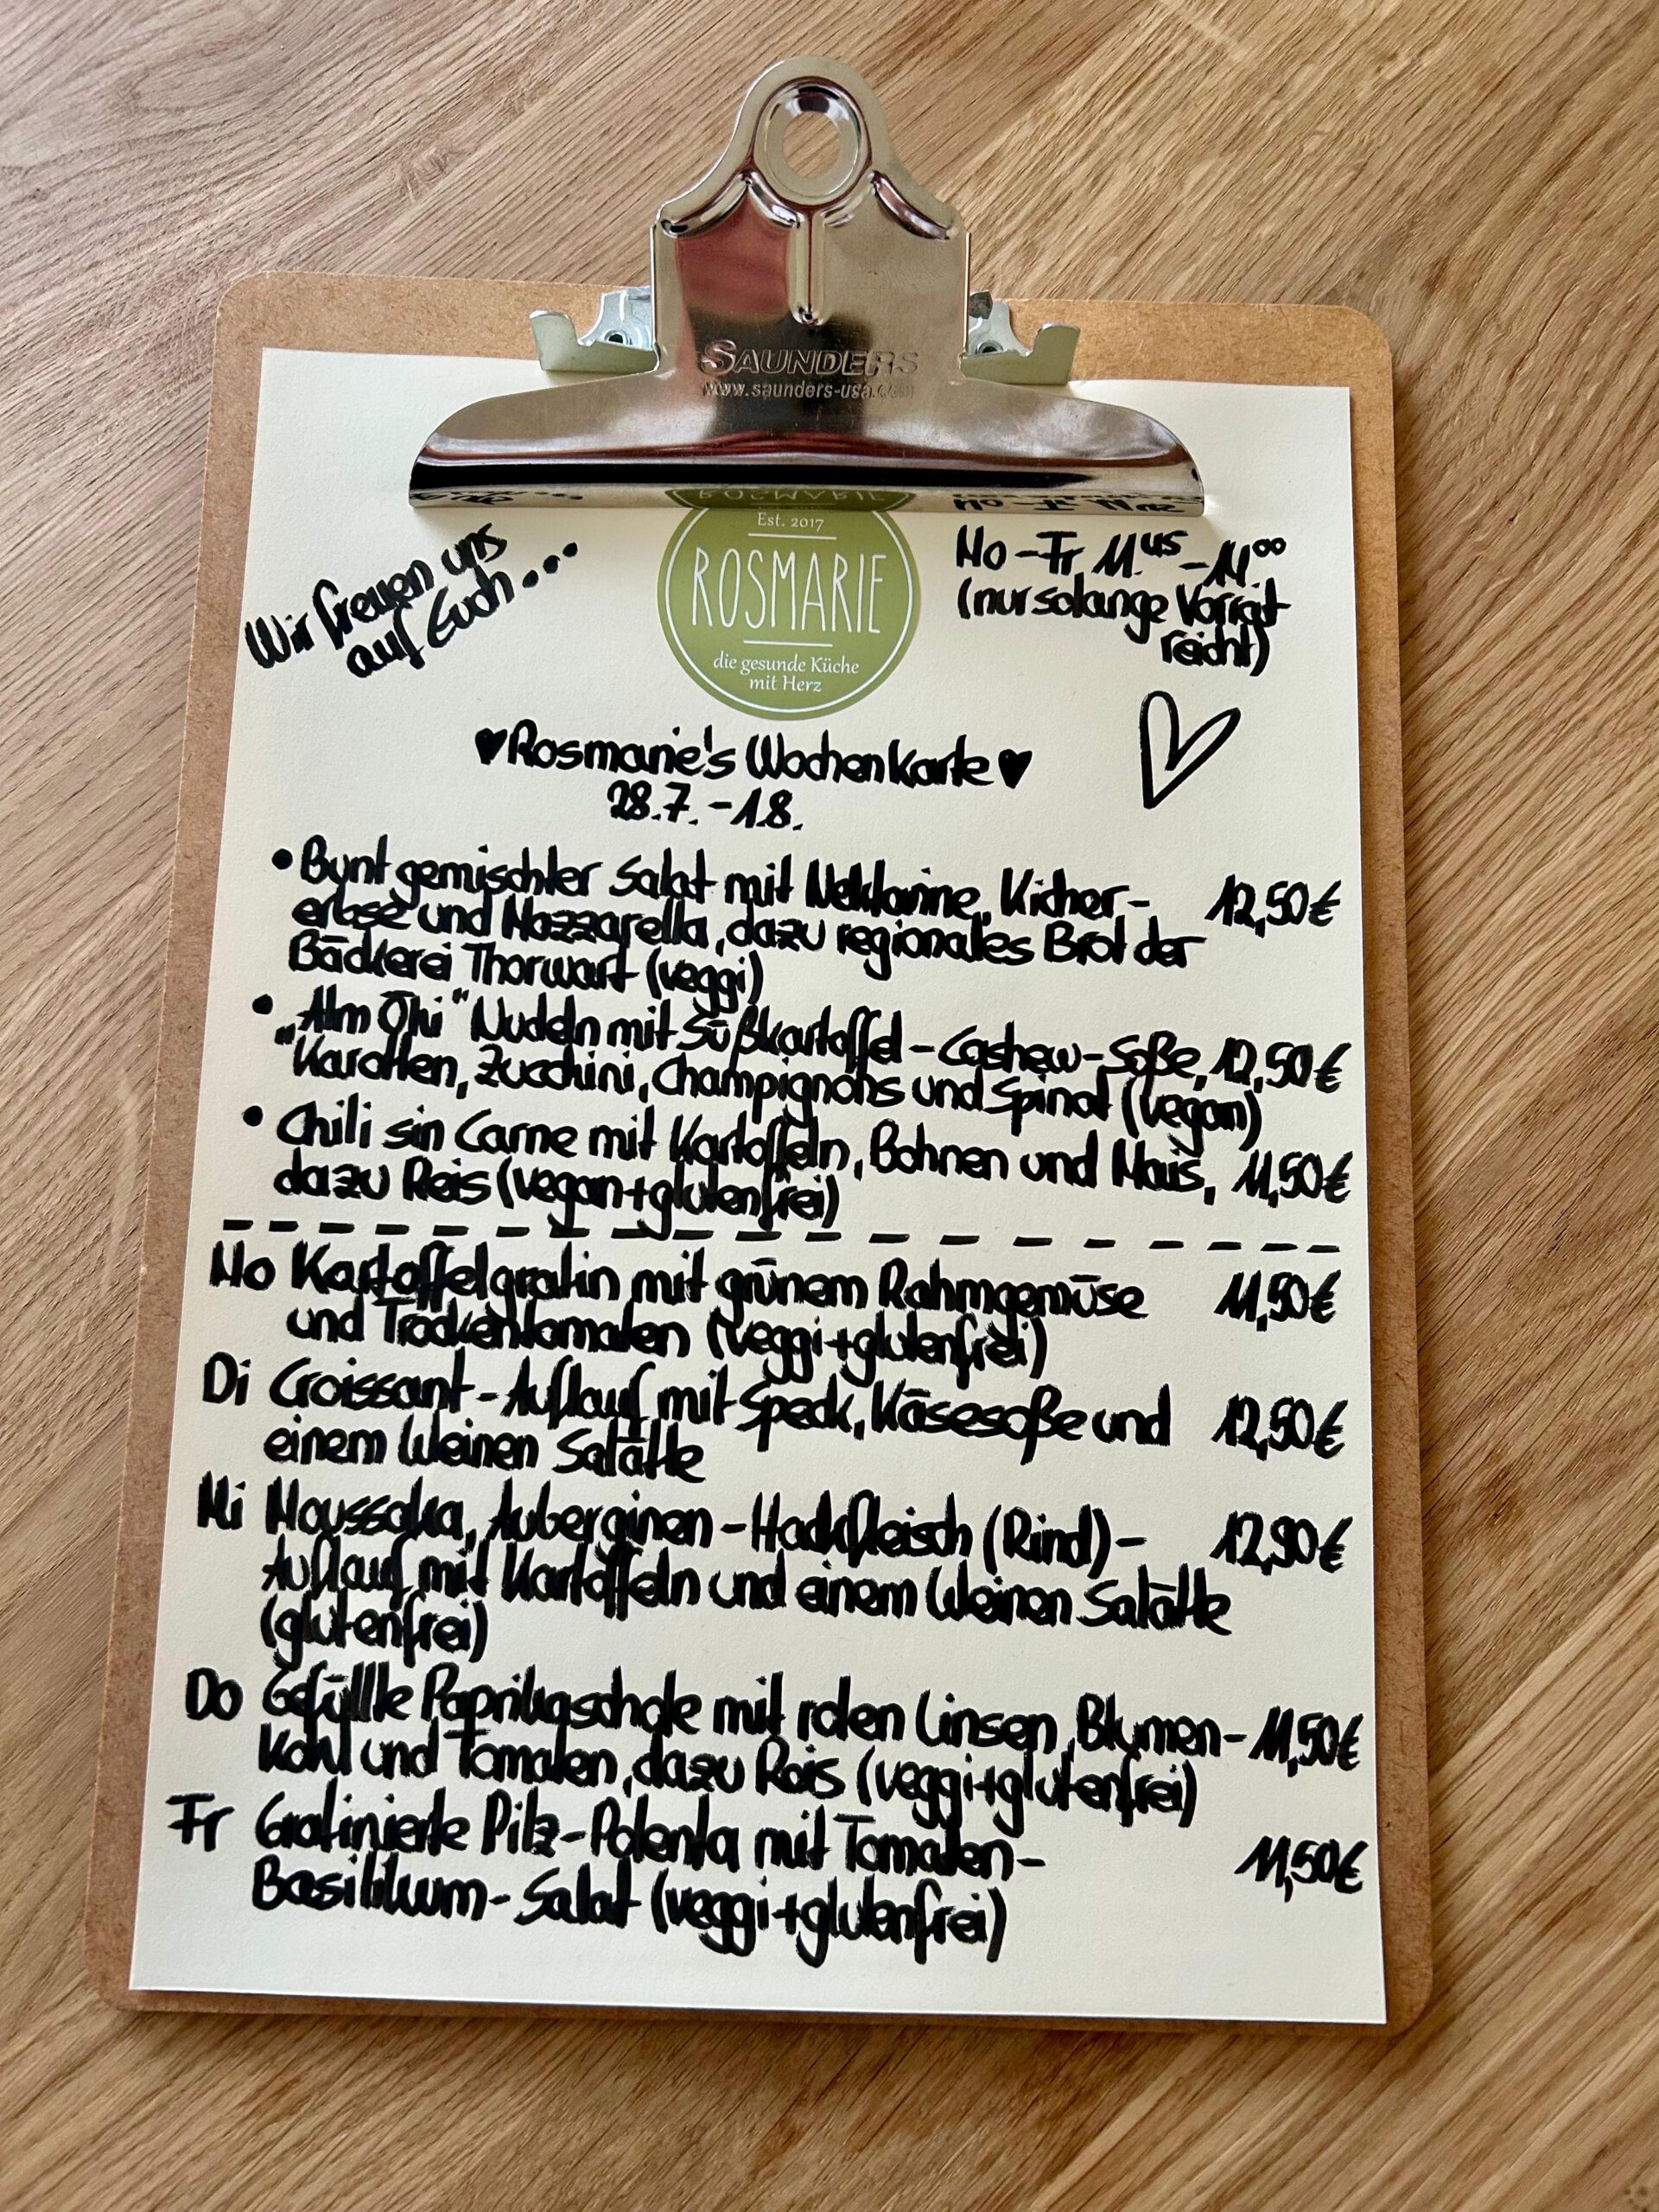 SAUNDERS
www.saunders-usa.com
Est. 2017
ROSMARIE
die gesunde Küche
mit Herz
Wir freuen uns
auf Euch...
Mo-Fr 11.45-14.00
(nur solange Vorrat
reicht)
♥Rosmarie's Wochenkarte♥
28.7.-1.8.
• Bunt gemischter Salat mit Nektarine, Kicher- 12,50€
erbse und Mozzarella, dazu regionales Brot der
Bäckerei Thorwart (veggi)
• „Alm Öhi" Nudeln mit Süßkartoffel-Cashew-Soße, 12,50€
Karotten, Zucchini, Champignons und Spinat (vegan)
• Chili sin Carne mit Kartoffeln, Bohnen und Mais, 11,50€
dazu Reis (vegan+glutenfrei)
Mo Kartoffelgratin mit grünem Rahmgemüse 11,50€
und Trockentomaten (veggi+glutenfrei)
Di Croissant-Auflauf mit Speck, Käsesoße und 12,50€
einem kleinen Salätle
Mi Moussaka, Auberginen-Hackfleisch (Rind)- 12,90€
Auflauf mit Kartoffeln und einem kleinen Salätle
(glutenfrei)
Do Gefüllte Paprikaschote mit roten Linsen, Blumen- 11,50€
kohl und Tomaten, dazu Reis (veggi+glutenfrei)
Fr Gratinierte Pilz-Polenta mit Tomaten- 11,50€
Basilikum-Salat (veggi+glutenfrei)